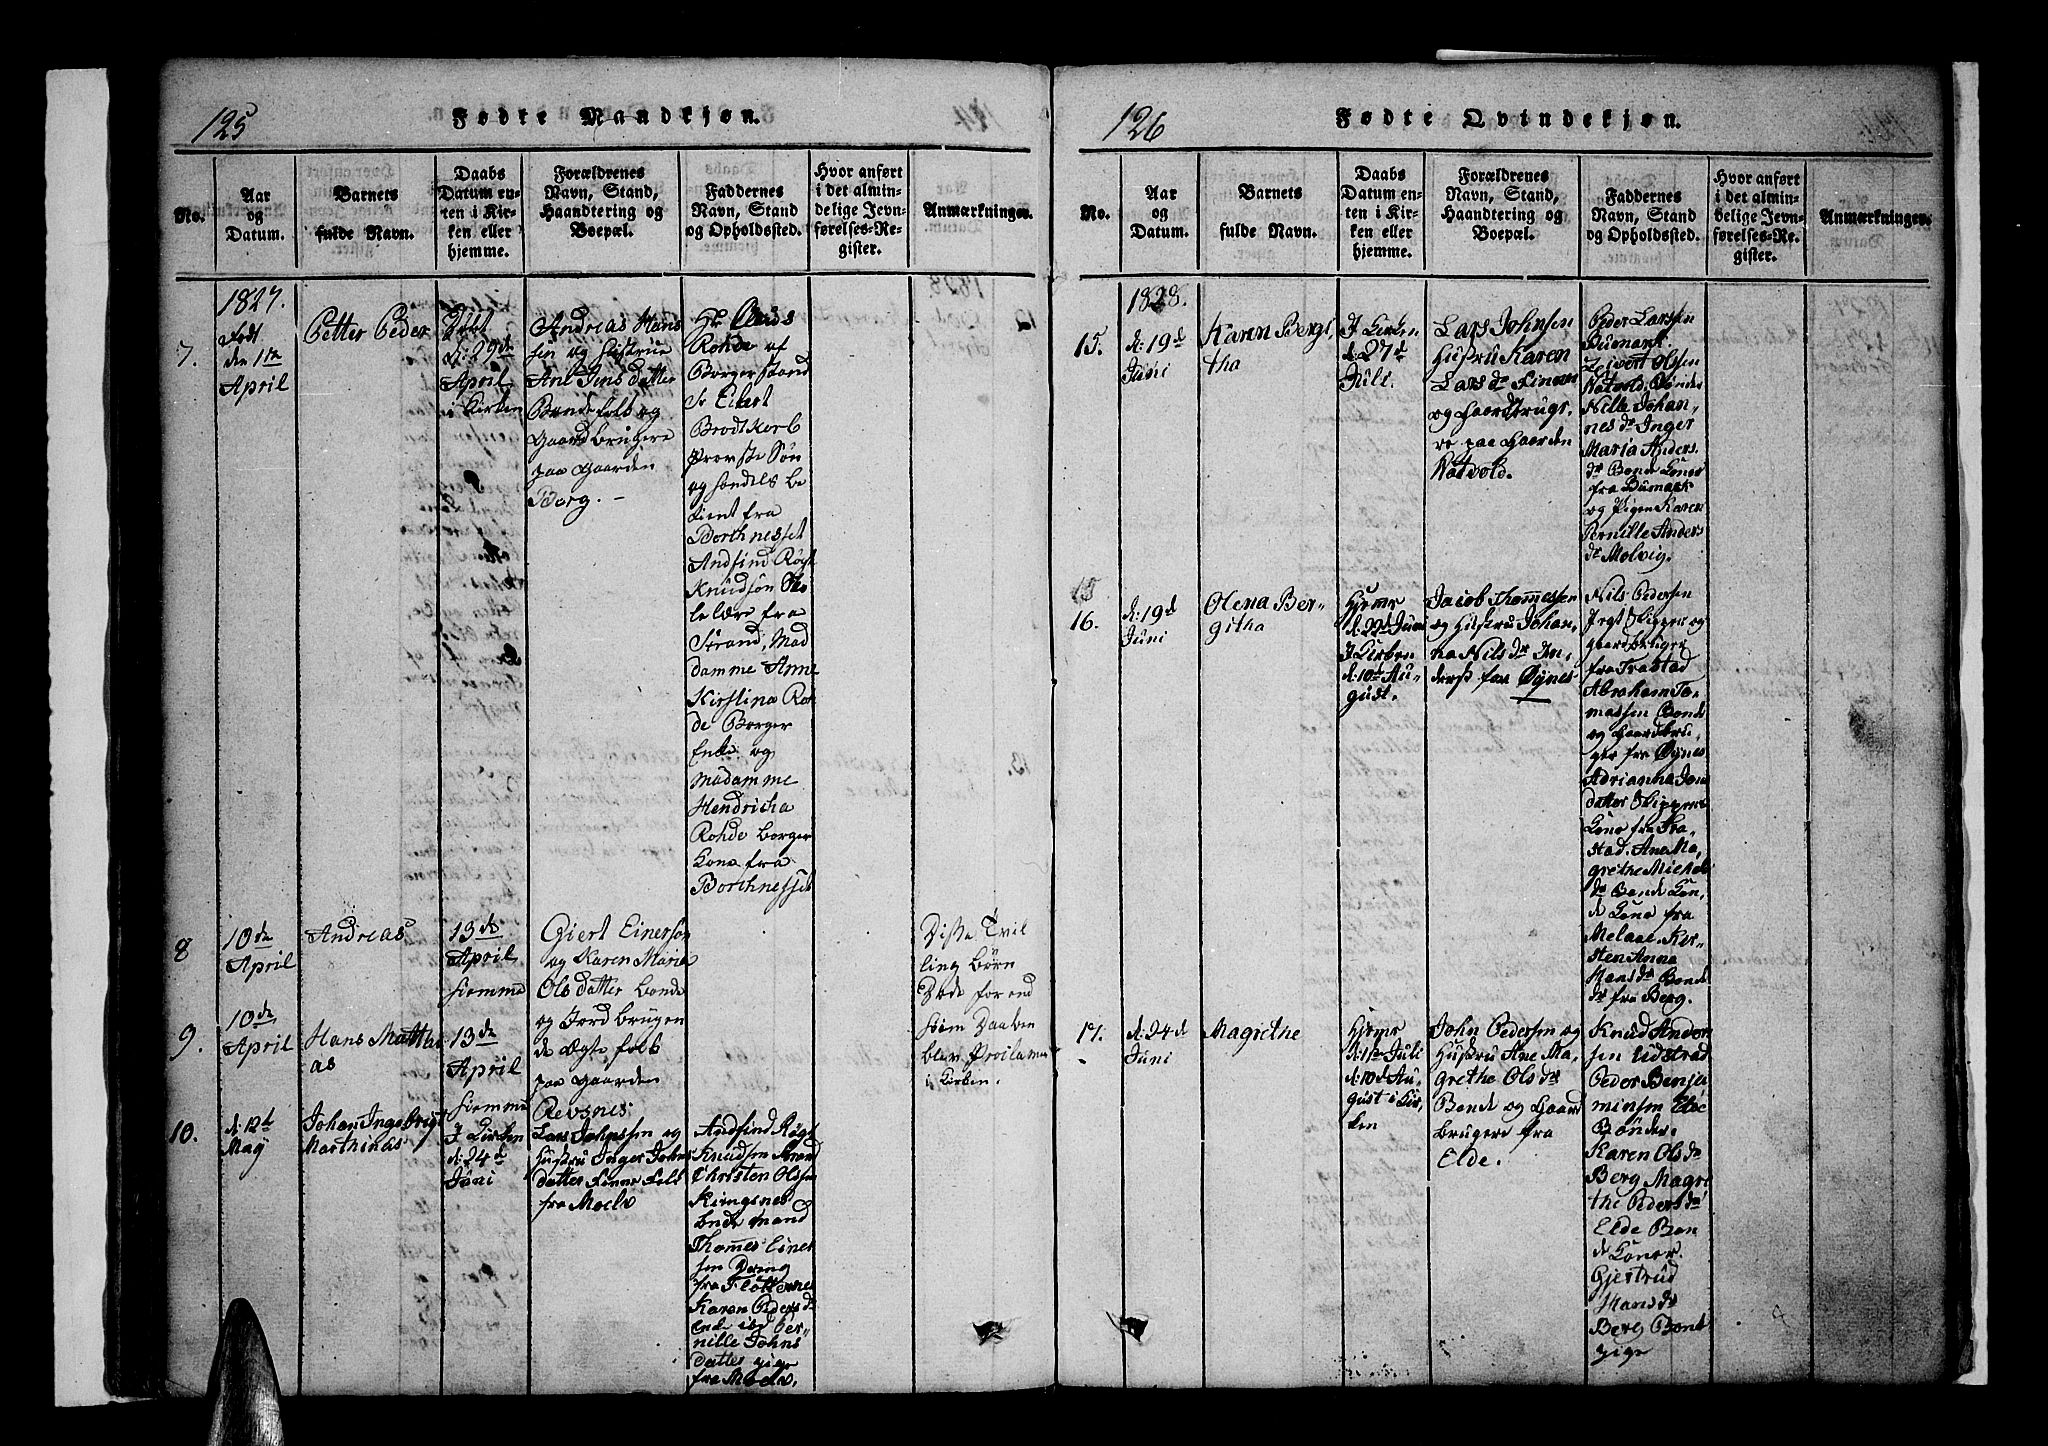 125
Fødte Mandkjøn.
No.
Aar
og
Datum.
Barnets
fulde Navn.
Daabs
Datum en-
ten i Kir-
ken eller
hjemme.
Forældrenes
Navn, Stand,
Haandtering og
Boepæl.
Faddernes
Navn, Stand
og Opholdssted.
Hvor anført
i det almin-
delige Jevn-
førelses-Re-
gister.
Anmærkninger.
1827.
7.
den 1te
April
Petter Peder
d: 29de
April
i Kirken
Andreas Hans
sen og Hustrue
Ane Jens datter
Bondefolk og
Gaardbrugere
paa Gaarden
Borg. -
Hr Claus
Rohde af
Borgerstand
Sr Eilert
Brodtkorb
Provste Søn
og Handels be
tient fra
Borchnesset
Andfind Røgl
Knudsøn
fra
Strand, Mad
damme Anne
Kirstina Roh
de Borger
Enke og
Madamme
Hendricha
Rohde borger
Kone fra
Borchnesset
8
10de
April
Andreas
13de
April
hiemme
Giert Einersøn
og Karen Maria
Ols datter bonde
og Jord brugen
de Ægte folk
paa Gaarden
Revsnes.
Disse Tvil
ling børn
Døde for end
Daaben
blev Proclame
i Kirken.
9.
10de
April
Hans Matthi
as
13de
April
hiemme
10.
d: 12te
May
Johan Ingebrigt
Marthinas
I Kirken
d: 24de
Juni
Lars Johnssen og
Hustru Inger Johns
datter Finne Folk
fra Moelv
Andfind Røgl
Knudsen Strand
Christen Olsen
Kringsnes
bndemand
Thomes Einer
sen Dreng
fra Flottenes
Karen Peders dr
Per-
nille Johns
datter pige
fra Moelv.
126
Fødte Qvindekjøn.
No.
Aar
og
Datum.
Barnets
fulde Navn.
Daabs
Datum en-
ten i Kir-
ken eller
hjemme.
Forældrenes
Navn, Stand,
Haandtering og
Boepæl.
Faddernes
Navn, Stand
og Opholdssted.
Hvor anført
i det almin-
delige Jevn-
førelses-Re-
gister.
Anmærkninger.
1828.
15.
d: 19d
Juni
Karen Bergi
tha
I Kirken
d: 27d
Juli.
Lars Johnsen
Hustru Karen
Lars dr Finner
og Gaardbruge-
re paa Gaarden
Natvold.
Peder Larsen
Bumark.
Zeivert Olsen
Natvold. Bønder
Nille Johan-
nes dr Inger
Maria Anders
dr Bonde Koner
fra Bumark
og Pigen Karen
Pernille Anders
dr Molvig.
15
16.
d: 19d
Juni
Olena Ber-
githa
Hjeme
d: 22d Juni
I Kirken
d: 10d Au-
gust.
Jacob Thomessen
og Hustru Johan-
na Nils dr In-
derst paa Øynes
Nils Pedersen
Jegt Skipper og
gaardbruger
fra Trastad
Abraham To-
massen Bonde
og Gaardbru-
ger fra Øynes
Adrianna Jons
datter Skippers
Kone fra Tra-
stad. Ane Ma-
grethe Michels
dr Bonde Kon-
de Kone fra
Melaae. Kir-
sten Anna
Hans dr Bonde
dr fra Berg.
17.
d: 24d
Juni
Magrethe
Hjeme
d: 1d Juli
d: 10d Au-
gust i Kir-
ken
John Pedersen og
Hustru Ane Ma-
grethe Ols dr
Bonde og Gaard
brugere fra
Elde.
Knud Ander
sen Udstrad
Peder Benja
minsen Elde
Bønder.
Karen Ols dr
Berg Magre
the Peders dr
Elde Bon
de Koner.
Gjertrud
Hans dr
Berg Bond
pige